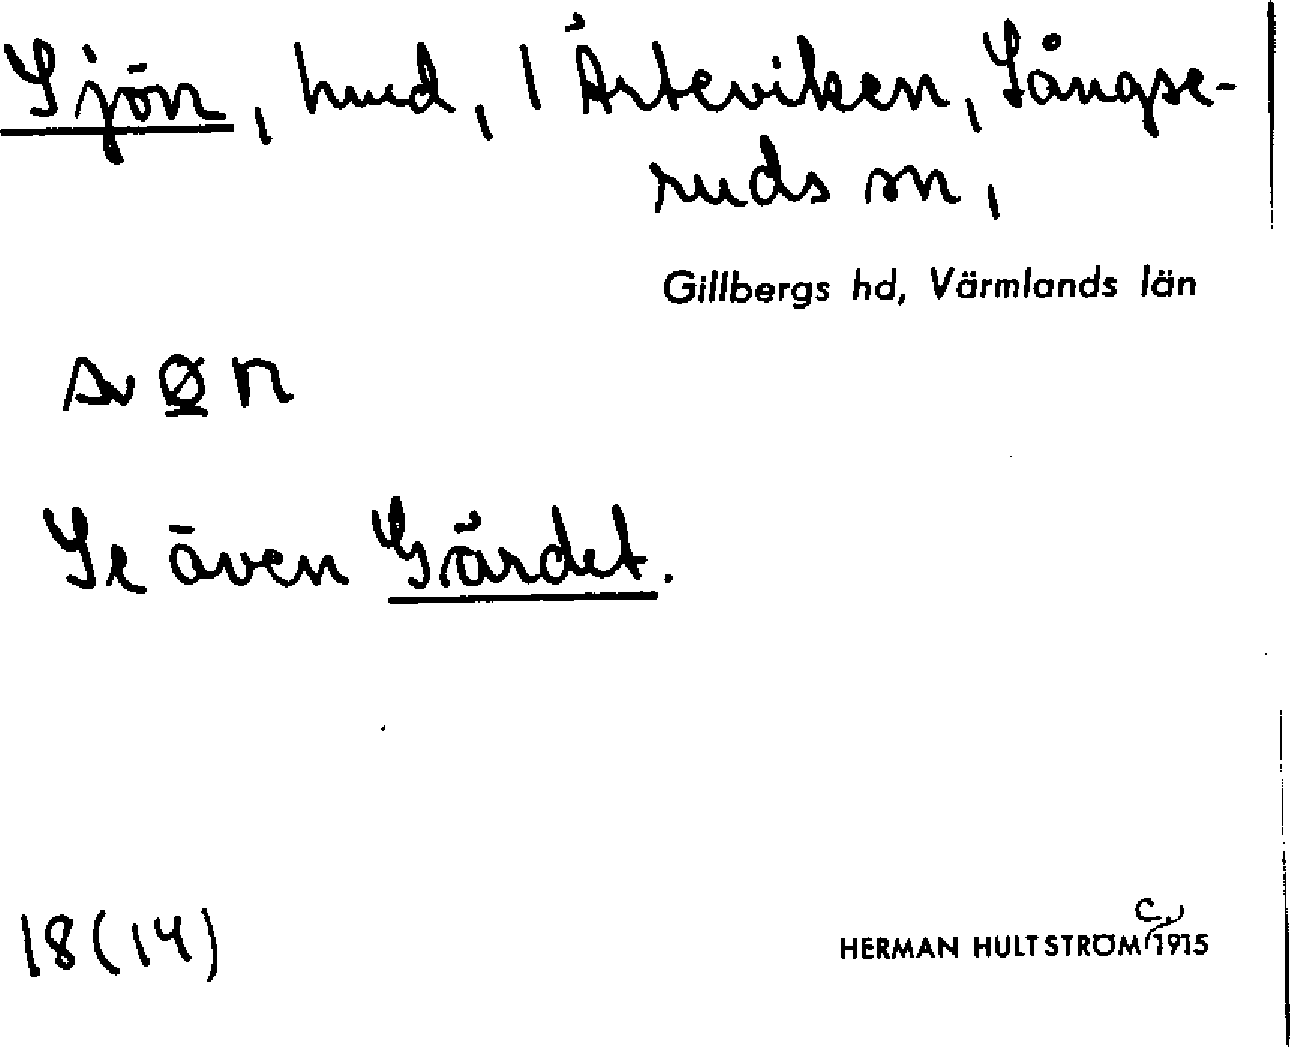 Sjön, hmd, 1 Ärteviken, Långse-
ruds sn,
Gillbergs hd, Värmlands län
Se även Gärdet.
18(14)
HERMAN HULTSTRÖM c. 1915